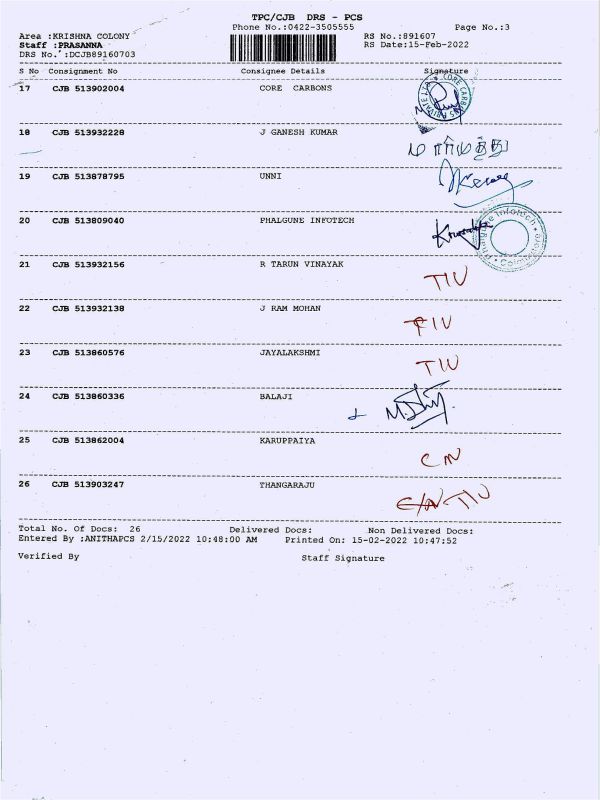 TPC/CJB DRS - PCS
Phone No.:0422-3505555 Page No.:3
Area :KRISHNA COLONY RS No.:891607
Staff :PRASANNA RS Date:15-Feb-2022
DRS No.:DCJB89160703
S No Consignment No Consignee Details Signature
17 CJB 513902004 CORE CARBONS
CORE CARBONS PRIVATE
18 CJB 513932228 J GANESH KUMAR மாரிமுத்து
19 CJB 513878795 UNNI
20 CJB 513809040 PHALGUNE INFOTECH
21 CJB 513932156 R TARUN VINAYAK TIV
22 CJB 513932138 J RAM MOHAN TIV
23 CJB 513860576 JAYALAKSHMI TIV
24 CJB 513860336 BALAJI
25 CJB 513862004 KARUPPAIYA CN
26 CJB 513903247 THANGARAJU C/N TIV
Total No. Of Docs: 26 Delivered Docs: Non Delivered Docs:
Entered By :ANITHAPCS 2/15/2022 10:48:00 AM Printed On: 15-02-2022 10:47:52
Verified By Staff Signature